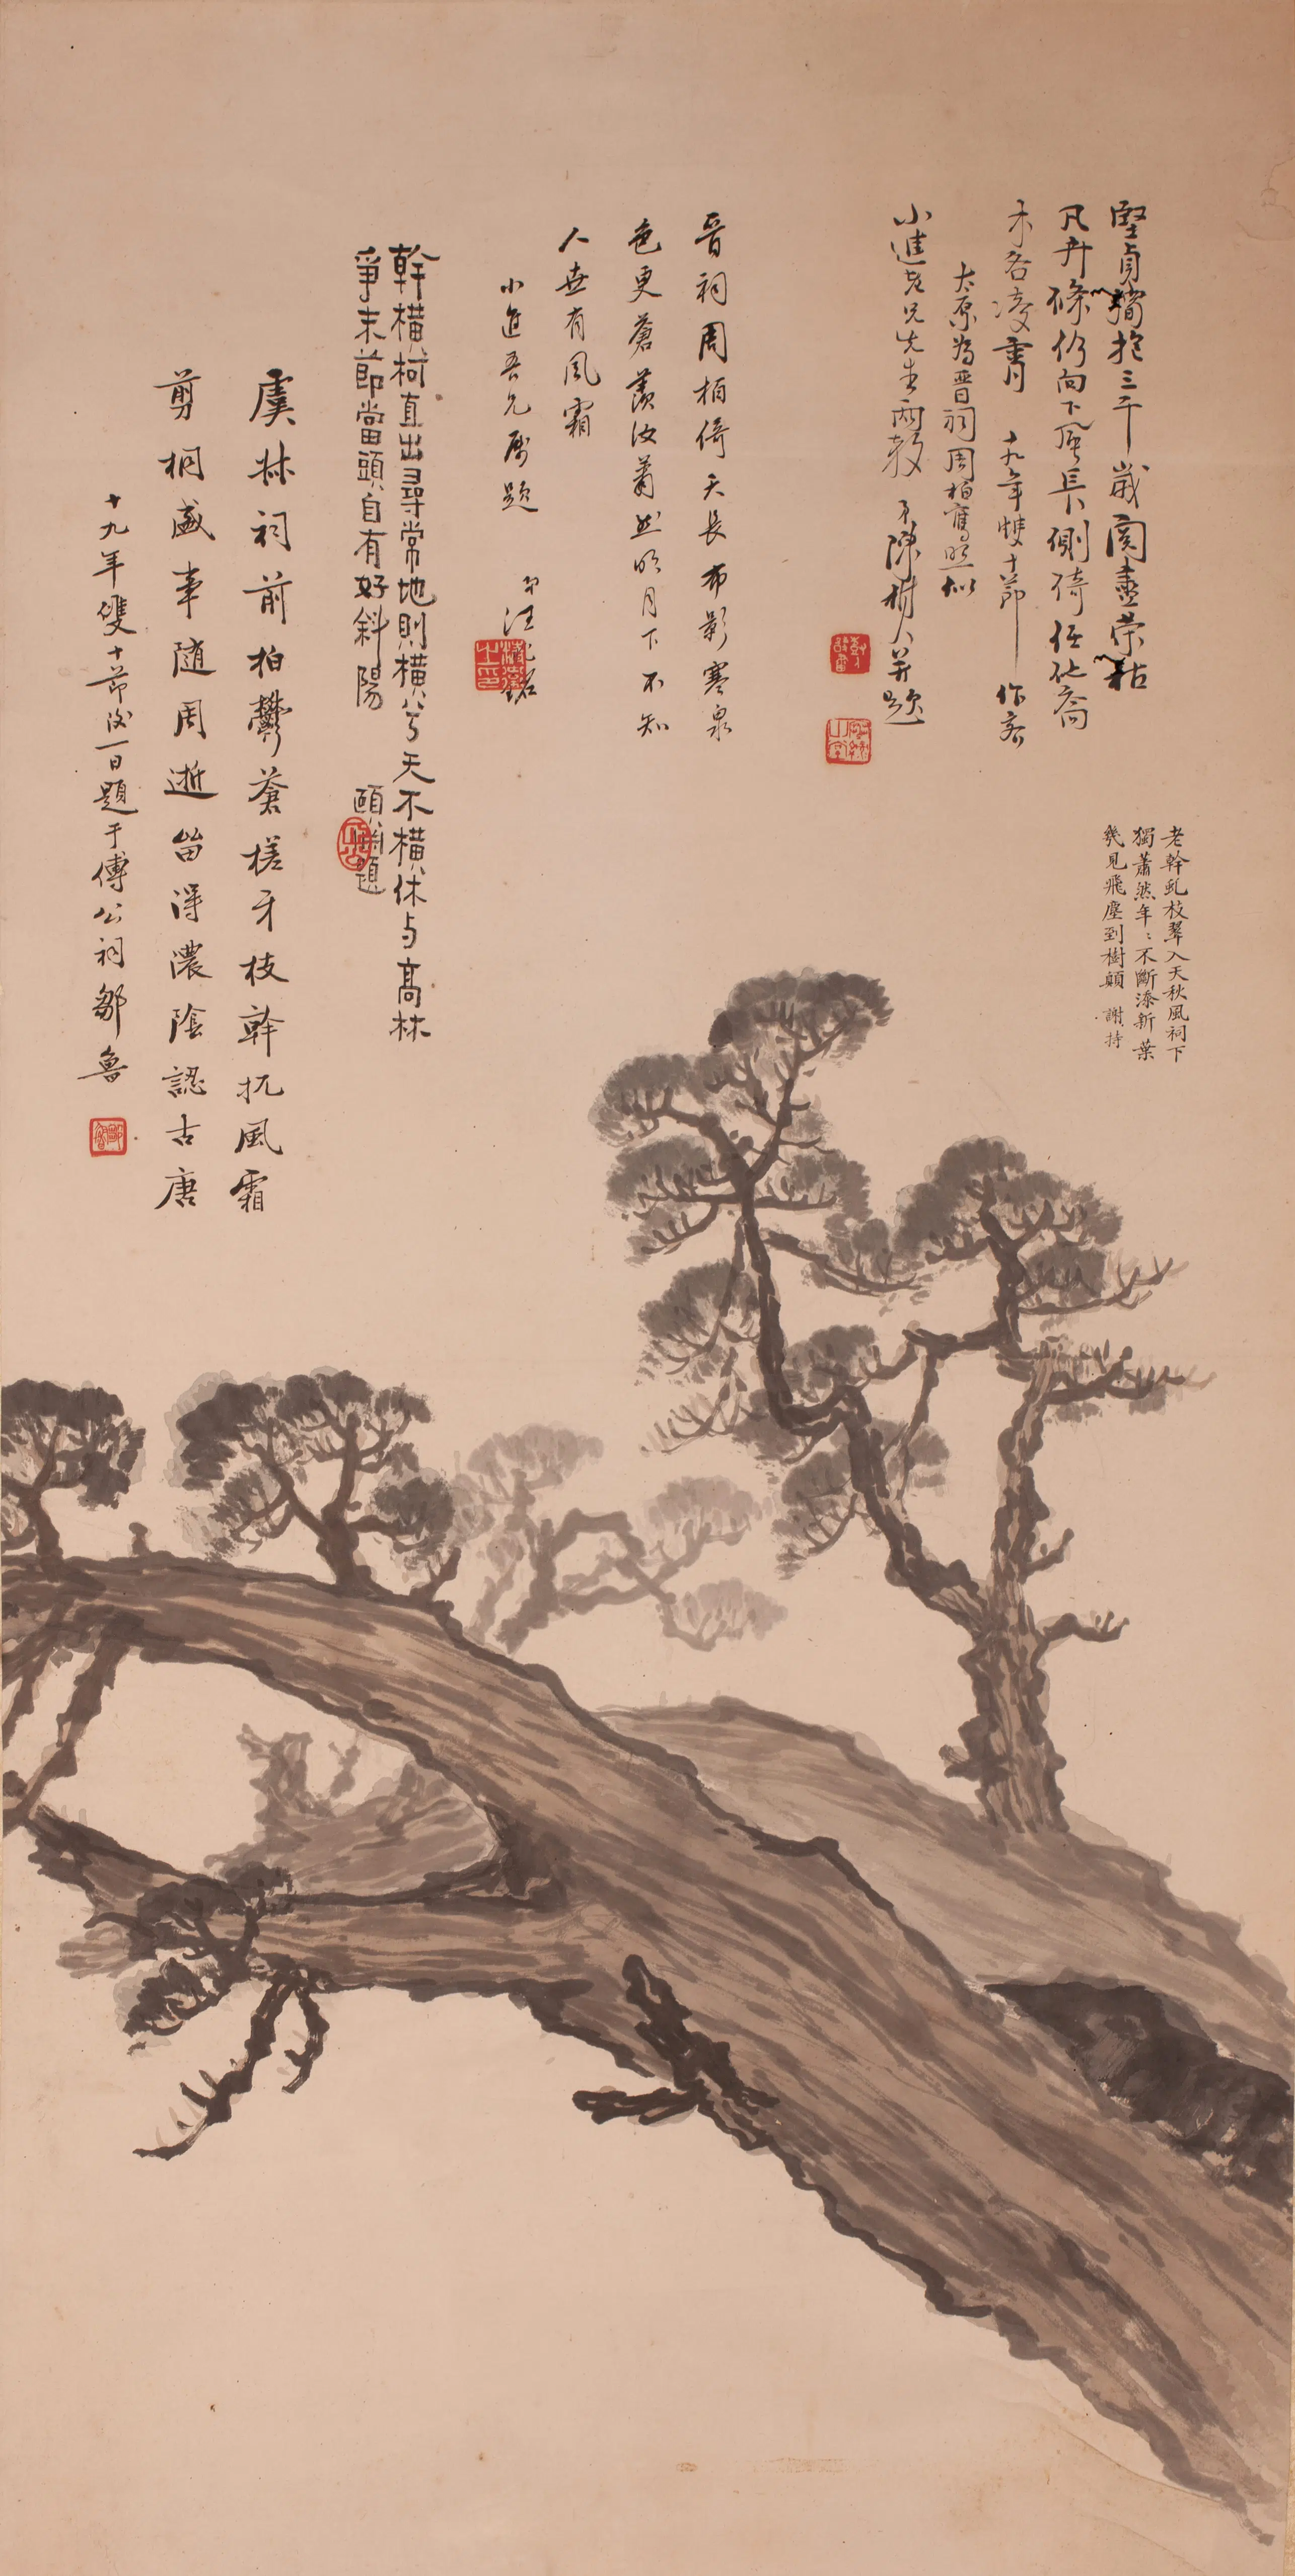 堅貞獨抱三千歲閱盡榮枯
凡卉條仍向下風長側倚任他喬
木各凌霄 十九年雙十節 作客
太原為晉祠周柏寫照似
小進老兄先生兩教 弟陳樹人并題
晉祠周柏倚天長布影寒泉
色更蒼羨汝蕭然明月下不知
人世有風霜
小進吾兄屬題 弟汪兆銘
幹橫柯直出尋常地則橫兮天不橫休與高林
爭末節當頭自有好斜陽 頤淵題
虞林祠前柏鬱蒼槎牙枝幹抗風霜
剪桐盛事隨周逝留得濃陰認古唐
十九年雙十節後一日題于傅公祠鄒魯
老幹虬枝翠入天秋風祠下
獨蕭然年〻不斷添新葉
幾見飛塵到樹顛 謝持